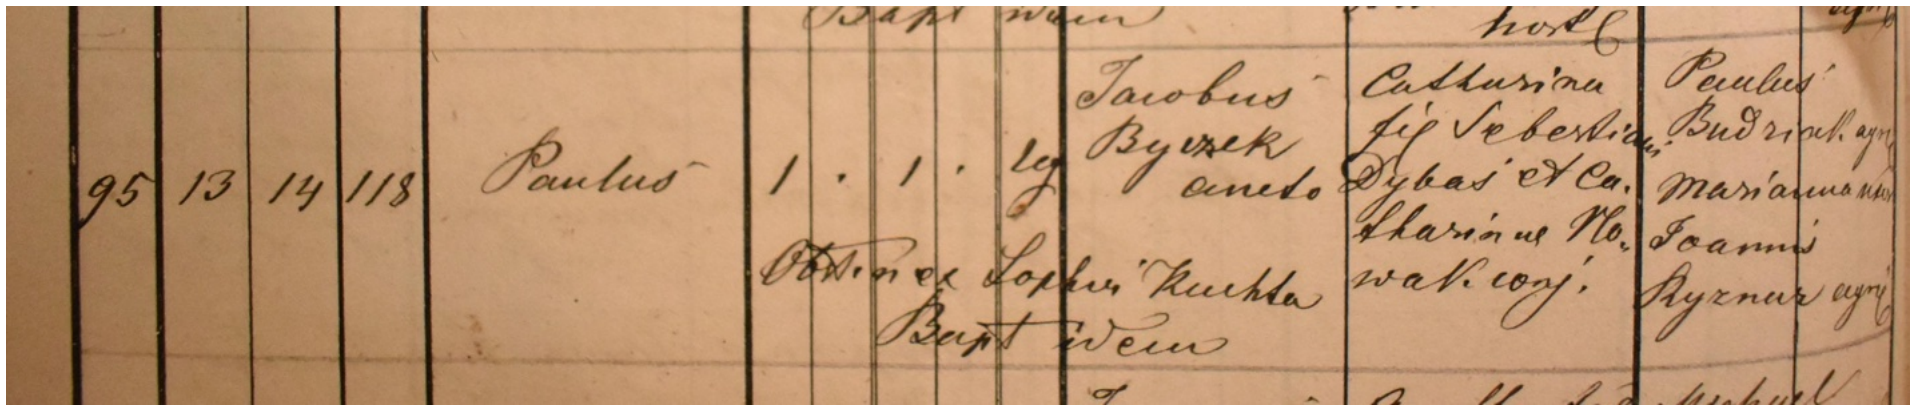 Bapt idem
hort
95 13 14 118 Paulus 1 . 1 . leg
Jacobus
Byczek
aneto
Catharina
fig Sebestiani
Dybaś et Ca.
tharinae No.
wak conj.
Paulus
Budziak agri
Marianna uxor
Joannis
Ryznar agri
Obstinex Sophia Kuchta
Bapt idem
Michael